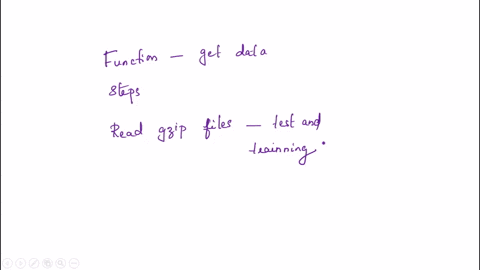 Function — get data
Steps
Read gzip files — test and
trainning